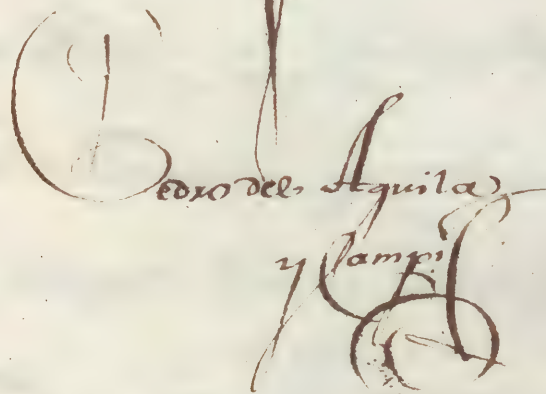 Pedro del Aguila
y Campi